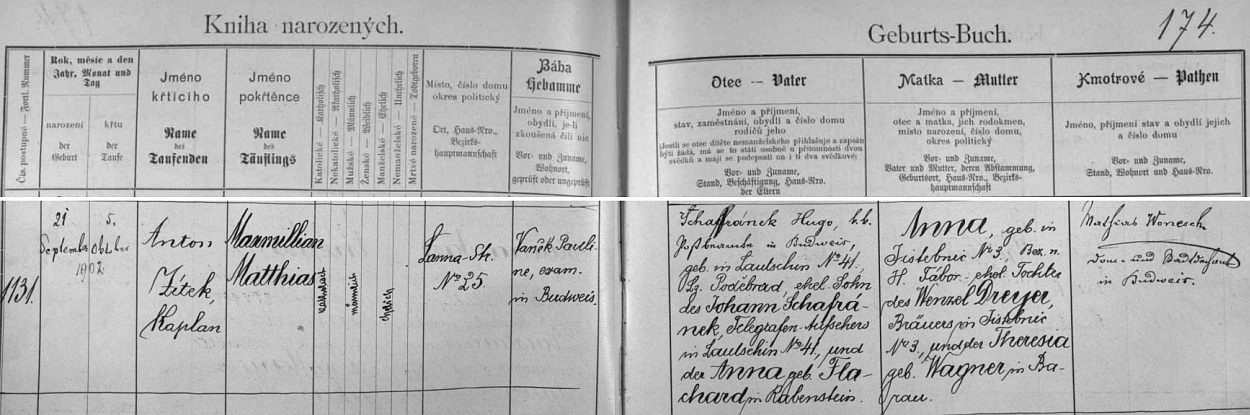 174.
Kniha narozených.
Geburts-Buch.
Čís. postupné — Fortl. Nummer
Rok, měsíc a den
Jahr, Monat und
Tag
narození
der
Geburt
křtu
der
Taufe
Jméno
křtícího
Name
des
Taufenden
Jméno
pokřtěnce
Name
des
Täuflings
Katolické — Katholisch
Nekatolické — Akatholisch
Mužské — Männlich
Ženské — Weiblich
Manželské — Ehelich
Nemanželské — Unehelich
Mrtvě narozené — Todtgeboren
Místo, číslo domu
okres politický
Ort, Haus-Nro.,
Bezirks-
hauptmannschaft
Bába
Hebamme
Jméno a příjmení,
obydlí, je-li
zkoušená čili nic
Vor- und Zuname,
Wohnort,
geprüft oder ungeprüft
Otec — Vater
Jméno a příjmení,
stav, zaměstnání, obydlí a číslo domu
rodičů jeho
(Jestli se otec dítěte nemanželského přihlašuje a zapsán
býti žádá, má se to státi osobně u přítomnosti dvou
svědků a mají se podepsati on i ti dva svědkové)
Vor- und Zuname,
Stand, Beschäftigung, Haus-Nro.
der Eltern
Matka — Mutter
Jméno a příjmení,
otec a matka, jich rodokmen,
místo narození, číslo domu,
okres politický
Vor- und Zuname,
Vater und Mutter, deren Abstammung,
Geburtsort, Haus-Nro., Bezirks-
hauptmannschaft
Kmotrové — Pathen
Jméno, příjmení stav a obydlí jejich
a číslo domu
Vor- und Zuname,
Stand, Wohnort und Haus-Nro.
1131.
21
September
5.
Oktober
1902
Anton
Žítek,
Kaplan
Maxmillian
Matthias
katholisch
männlich
ehelich
Lanna-Str.
No 25.
Vaněk Pauli-
ne, exam.
in Budweis.
Schafránek Hugo, k.k.
Postbeamte in Budweis,
geb. in Lautschin No 41,
Bz. Poděbrad, ehel. Sohn
des Johann Schafrá-
nek, Telegrafen-Aufsehers
in Lautschin No 41, und
der Anna geb. Fla-
chard in Rabenstein.
Anna, geb. in
Jistebnic No 3, Bez. n.
H. Tábor, ehel. Tochter
des Wenzel Dreyer,
Bräuers in Jistebnic
No 3, und der Theresia
geb. Wagner, in Ba-
rau.
Mathias Wonesch
Dom- und
in Budweis.